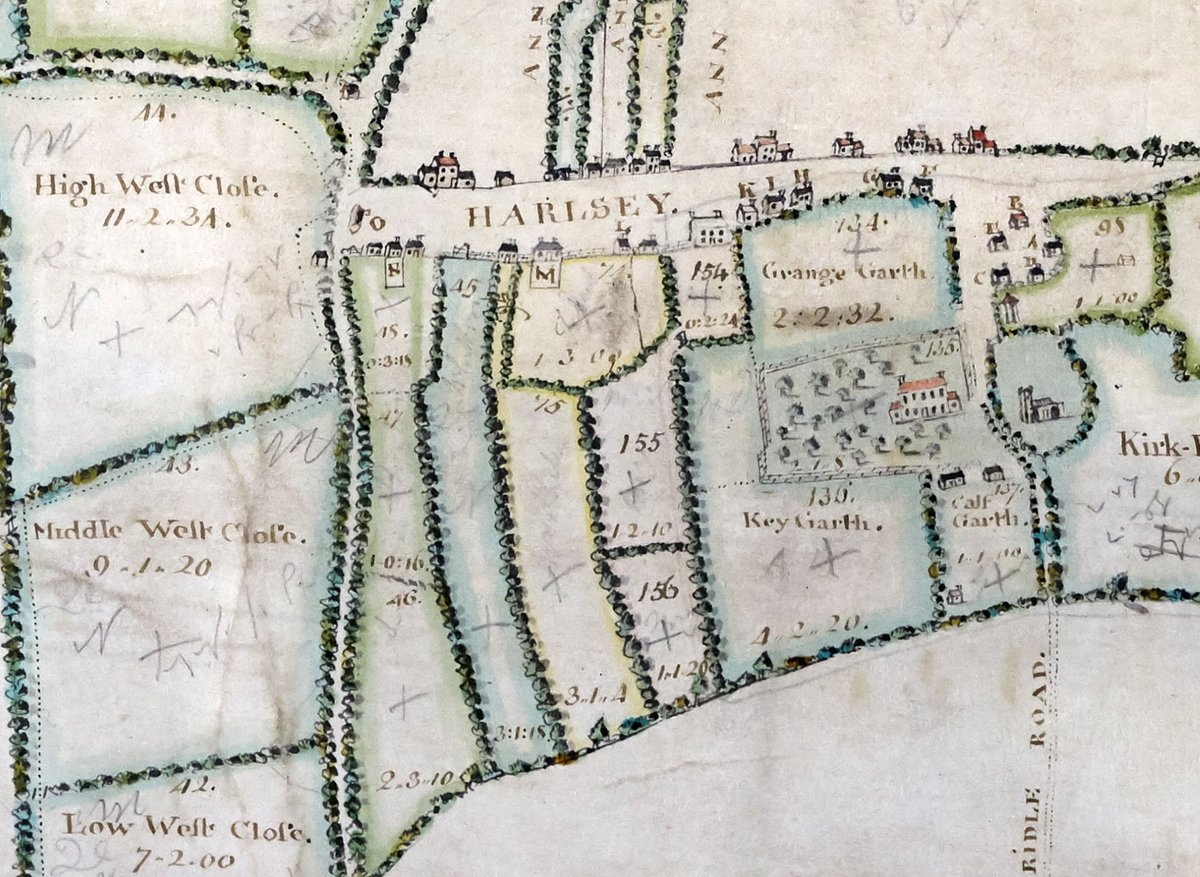 ANN
ANN
44.
High West Close.
11-2-34.
O
HARLSEY.
K I H
G F
E B
A
C D
L
M
N
74
1 3 09
45
48.
0:3:18
47
1-0:16
46.
2-3-10
3:1:18
75
3-1-4
154
0:2:24
155
1 2-10
156
1-1-20
134.
Grange Garth.
2:2:32.
135.
136.
Key Garth.
4-2-20.
137.
Calf
Garth.
98
1-1-00
Kirk-
6-
43.
Middle West Close.
9-1-20
42.
Low West Close.
7-2-00
RIDLE ROAD.